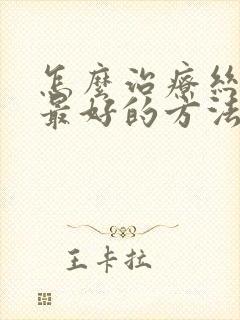 怎麼治療絲
最好的方法
王卡拉